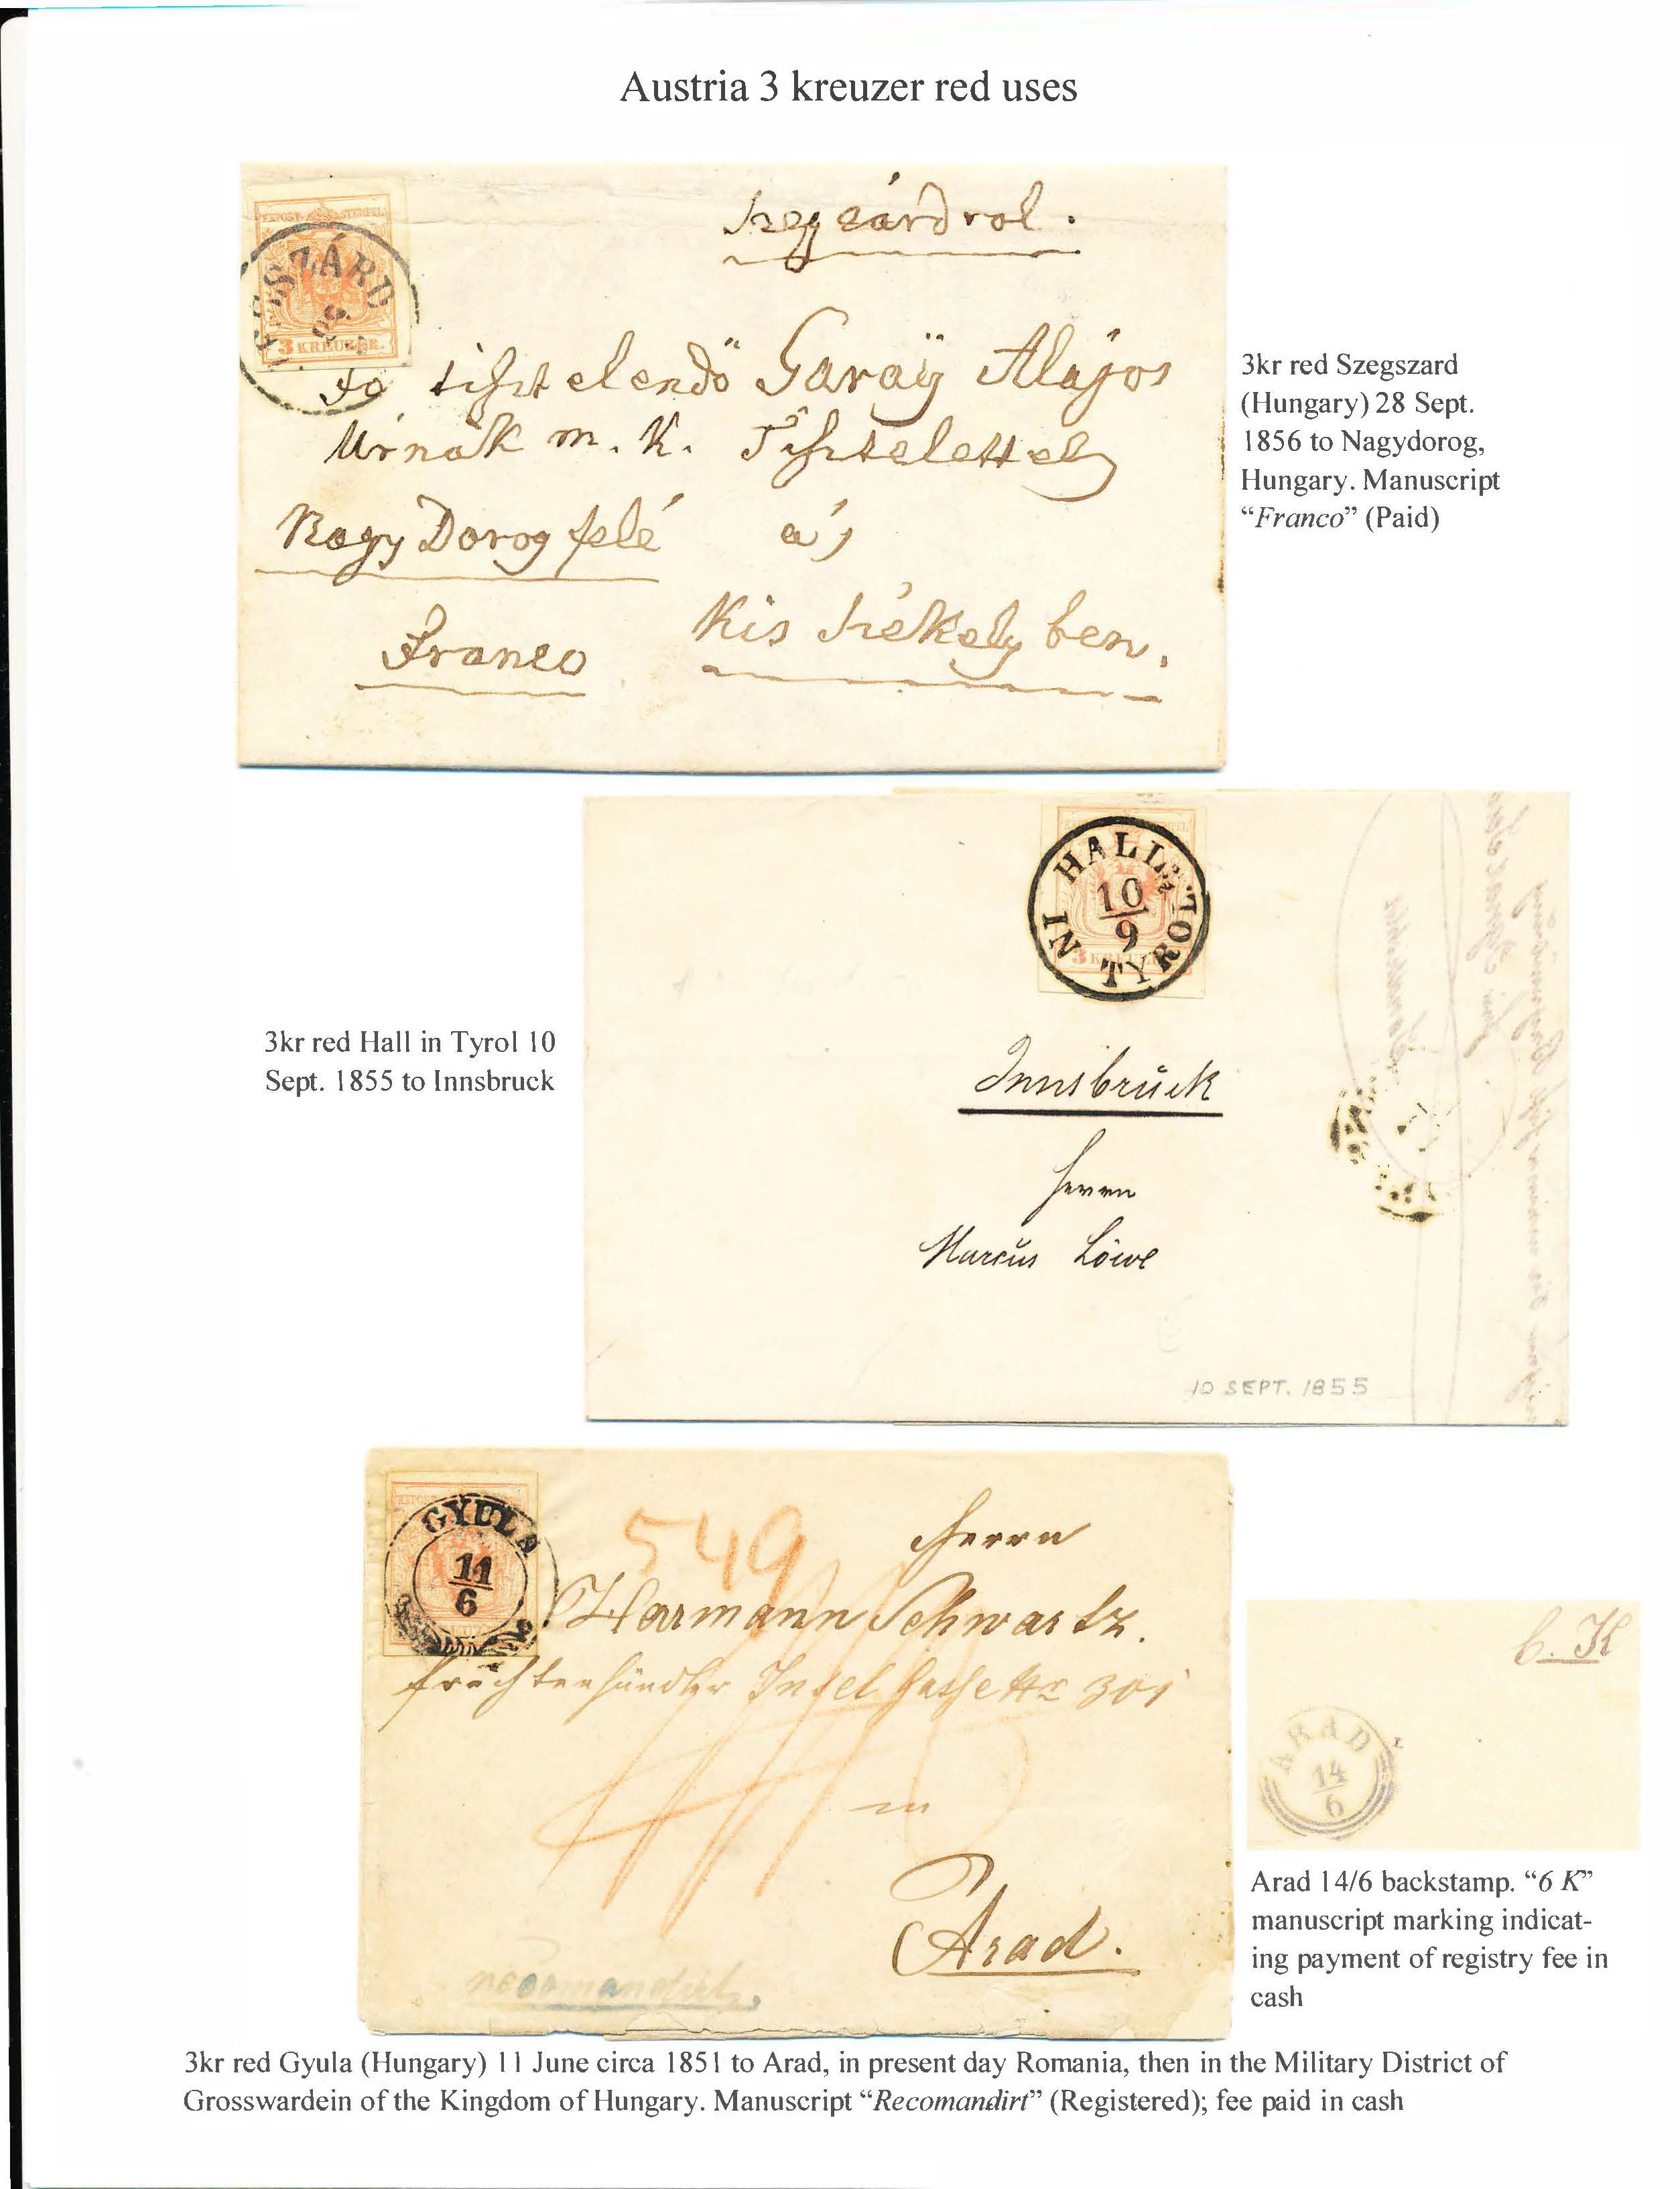 Austria 3 kreuzer red uses
KKPOST-STEMPEL
SZEGSZÁRD
3 KREUZER.
Szegzárdrol.
tisztelendő Garaÿ Alajos
Úrnak m. k. Tisztelettel
Nagy Dorog felé
Kis Székely ben.
Franco
3kr red Szegszard
(Hungary) 28 Sept.
1856 to Nagydorog,
Hungary. Manuscript
“Franco” (Paid)
HALL
10
9
IN TYROL
3 KREUZ
Innsbruck
Herrn
Marcus Löwe
10 SEPT. 1855
3kr red Hall in Tyrol 10
Sept. 1855 to Innsbruck
GYULA
11
6
549
Herrn
Harmann Schwartz.
Früchtenhändler Insel Gasse Nr 301
in
Arad.
recomandirt
6. K
ARAD
14
6
Arad 14/6 backstamp. “6 K”
manuscript marking indicat-
ing payment of registry fee in
cash
3kr red Gyula (Hungary) 11 June circa 1851 to Arad, in present day Romania, then in the Military District of
Grosswardein of the Kingdom of Hungary. Manuscript “Recomandirt” (Registered); fee paid in cash